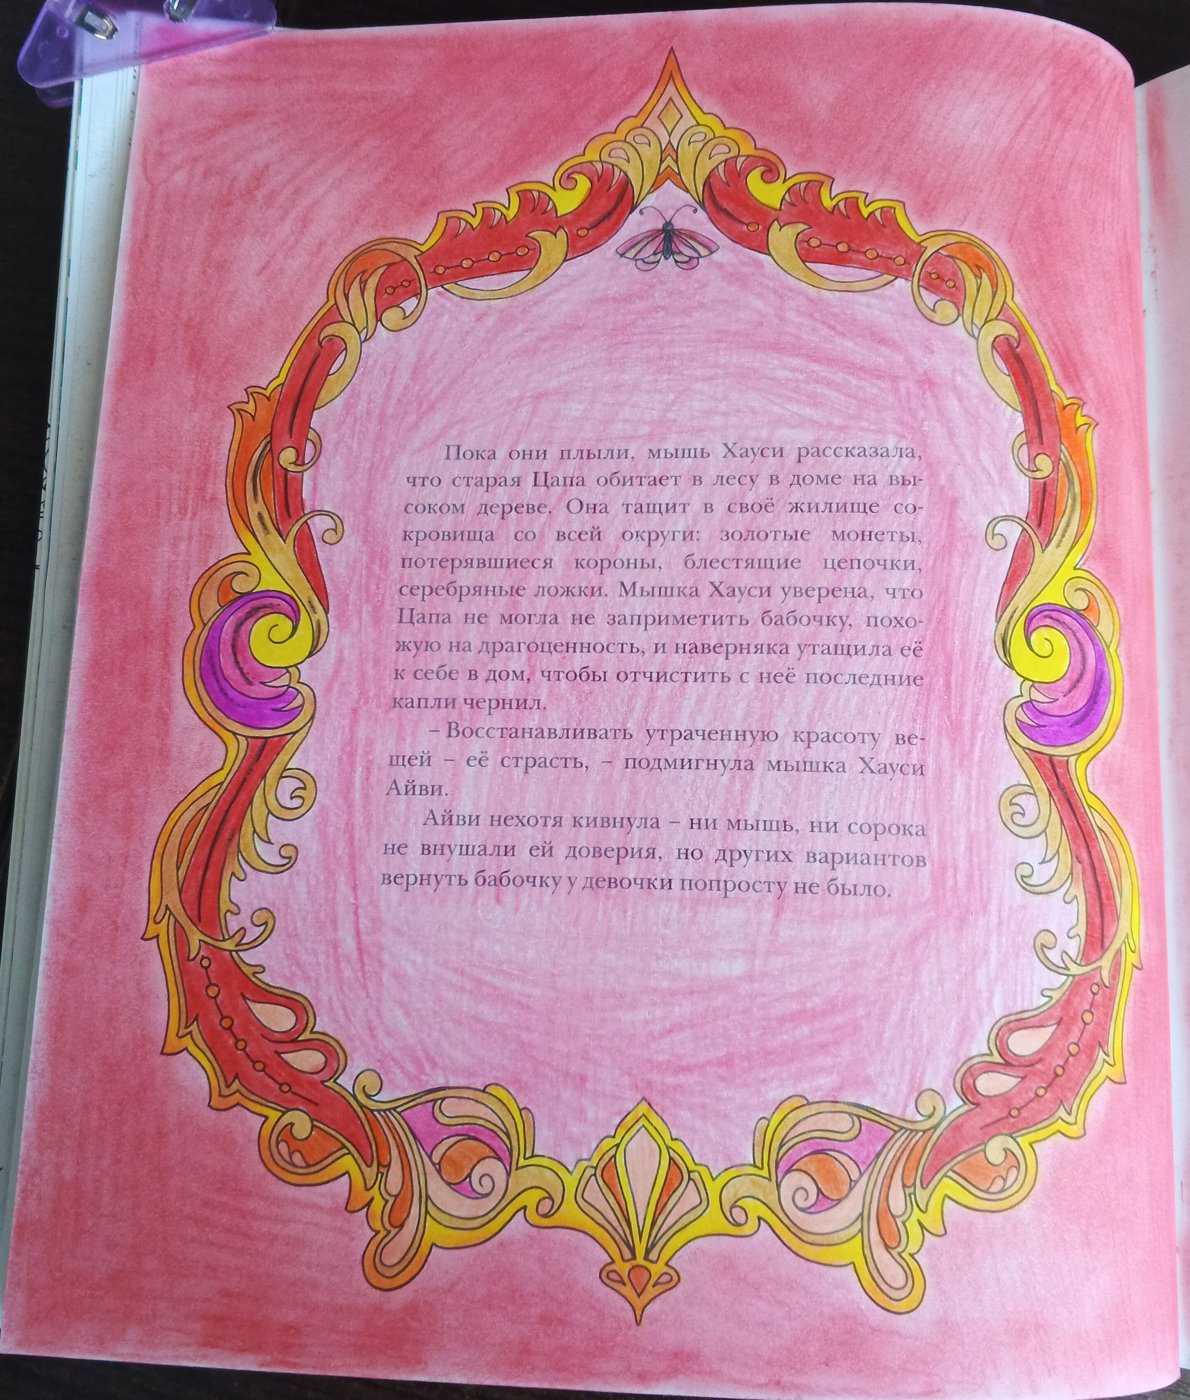 Пока они плыли, мышь Хауси рассказала,
что старая Цапа обитает в лесу в доме на вы-
соком дереве. Она тащит в своё жилище со-
кровища со всей округи: золотые монеты,
потерявшиеся короны, блестящие цепочки,
серебряные ложки. Мышка Хауси уверена, что
Цапа не могла не заприметить бабочку, похо-
жую на драгоценность, и наверняка утащила её
к себе в дом, чтобы отчистить с неё последние
капли чернил.
– Восстанавливать утраченную красоту ве-
щей – её страсть, – подмигнула мышка Хауси
Айви.
Айви нехотя кивнула – ни мышь, ни сорока
не внушали ей доверия, но других вариантов
вернуть бабочку у девочки попросту не было.